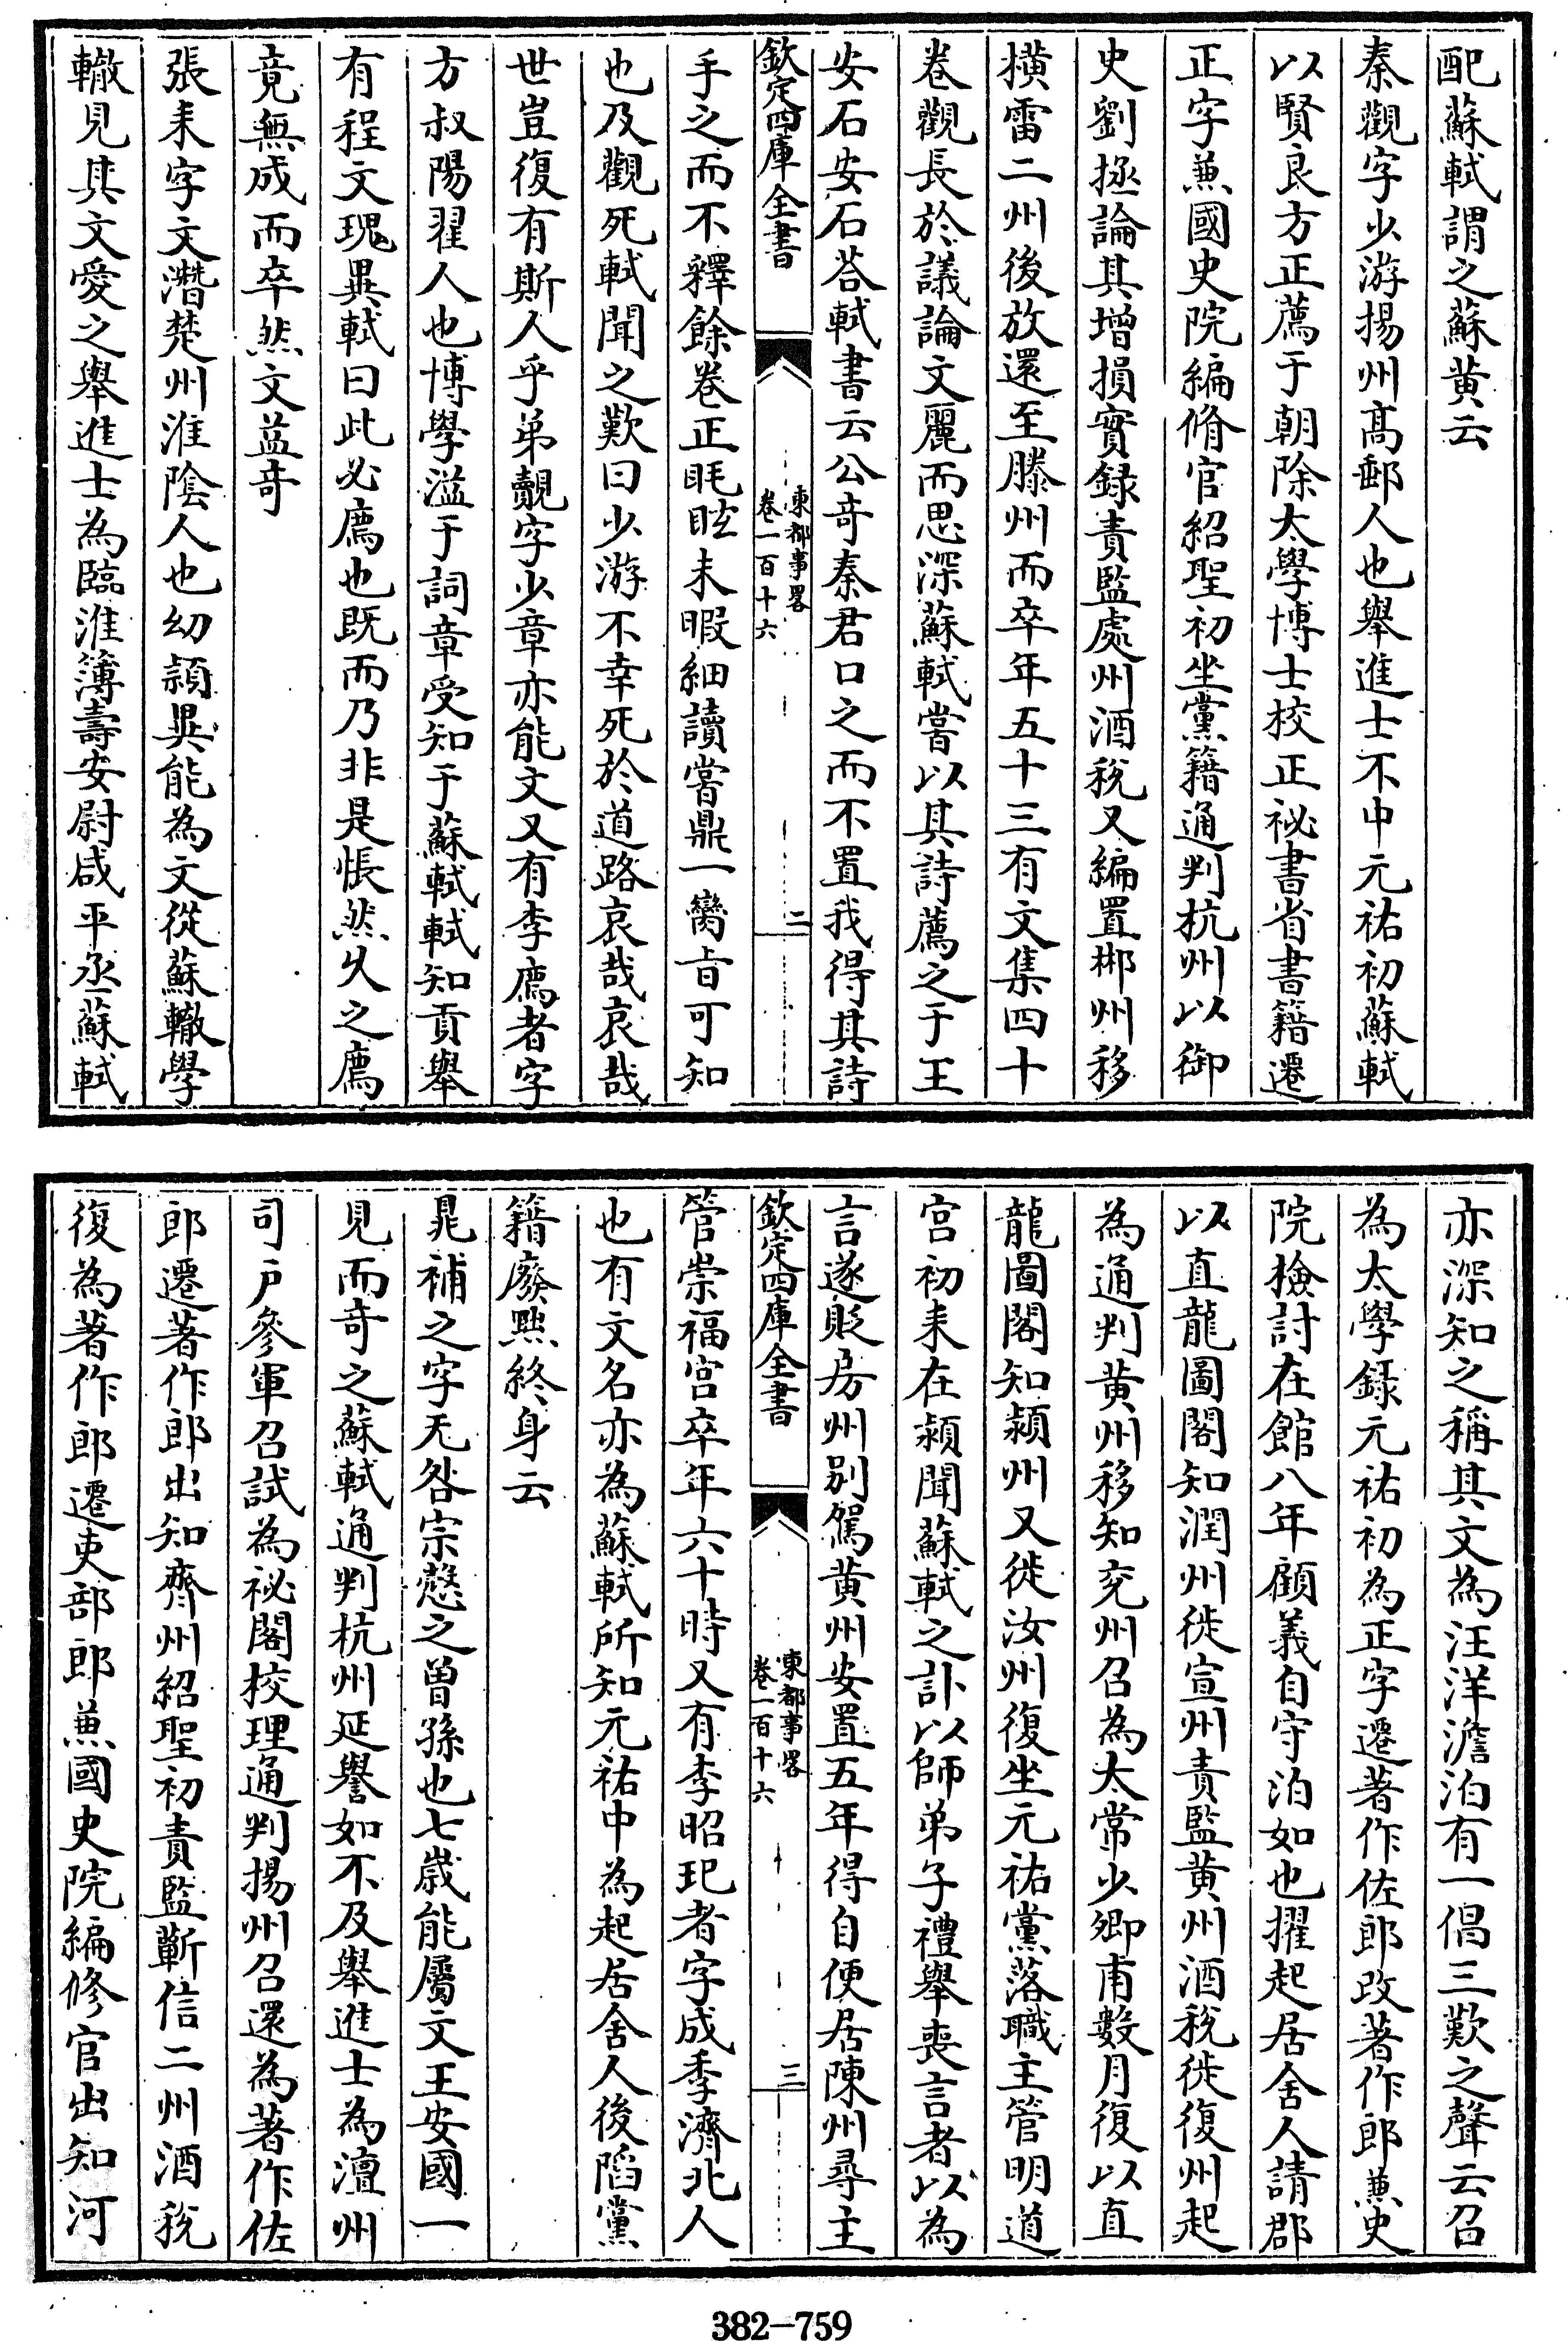 配蘇軾謂之蘇黄云
秦觀字少游揚州髙郵人也舉進士不中元祐初蘇軾
以賢良方正薦于朝除太學博士校正祕書省書籍遷
正字兼國史院編脩官紹聖初坐黨籍通判杭州以御
史劉拯論其增損實録責監處州酒稅又編置郴州移
橫雷二州後放還至滕州而卒年五十三有文集四十
卷觀長於議論文麗而思深蘇軾嘗以其詩薦之于王
安石安石荅軾書云公竒秦君口之而不置我得其詩
欽定四庫全書
東都事畧
卷一百十六
二
手之而不釋餘卷正眊眩未暇細讀嘗鼎一臠㫖可知
也及觀死軾聞之歎曰少游不幸死於道路哀哉哀哉
世豈復有斯人乎弟覿字少章亦能文又有李廌者字
方叔陽翟人也博學溢于詞章受知于蘇軾軾知貢舉
有程文瑰異軾曰此必廌也既而乃非是悵然久之廌
竟無成而卒然文益竒
張耒字文潛楚州淮隂人也幼頴異能為文從蘇轍學
轍見其文愛之舉進士為臨淮簿壽安尉咸平丞蘇軾
亦深知之稱其文為汪洋澹泊有一倡三歎之聲云召
為太學録元祐初為正字遷著作佐郎改著作郎兼史
院檢討在館八年顧義自守泊如也擢起居舍人請郡
以直龍圖閣知潤州徙宣州責監黄州酒稅徙復州起
為通判黄州移知兖州召為太常少卿甫數月復以直
龍圖閣知潁州又徙汝州復坐元祐黨落職主管明道
宮初耒在潁聞蘇軾之訃以師弟子禮舉喪言者以為
言遂貶房州别駕黄州安置五年得自便居陳州尋主
欽定四庫全書
東都事畧
卷一百十六
三
管崇福宮卒年六十時又有李昭玘者字成季濟北人
也有文名亦為蘇軾所知元祐中為起居舍人後陷黨
籍廢㸃終身云
晁補之字无咎宗慤之曽孫也七歲能屬文王安國一
見而竒之蘇軾通判杭州延譽如不及舉進士為澶州
司戶參軍召試為祕閣校理通判揚州召還為著作佐
郎遷著作郎出知齊州紹聖初責監蘄信二州酒稅
復為著作郎遷吏部郎兼國史院編修官出知河
382-759